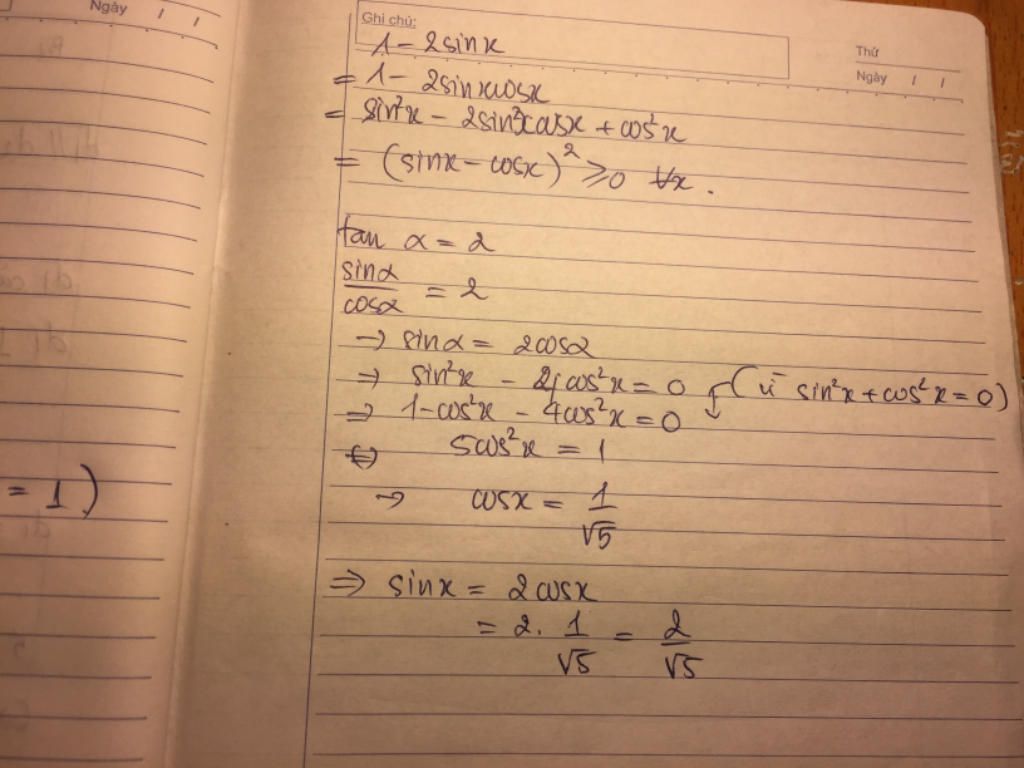 Ngày / /
Ghi chú:
Thứ
Ngày / /
1 - 2sinx
= 1 - 2sinxcosx
= sin²x - 2sin²xcosx + cos²x
= (sinx - cosx)² ⩾ 0 ∀x.
tan α = 2
sinα/cosα = 2
→ sinα = 2cosα
⇒ sin²x - 4cos²x = 0 (vì sin²x + cos²x = 0)
⇒ 1 - cos²x - 4cos²x = 0
⇔ 5cos²x = 1
→ cosx = 1/√5
⇒ sinx = 2cosx
= 2. 1/√5 = 2/√5
= 1)